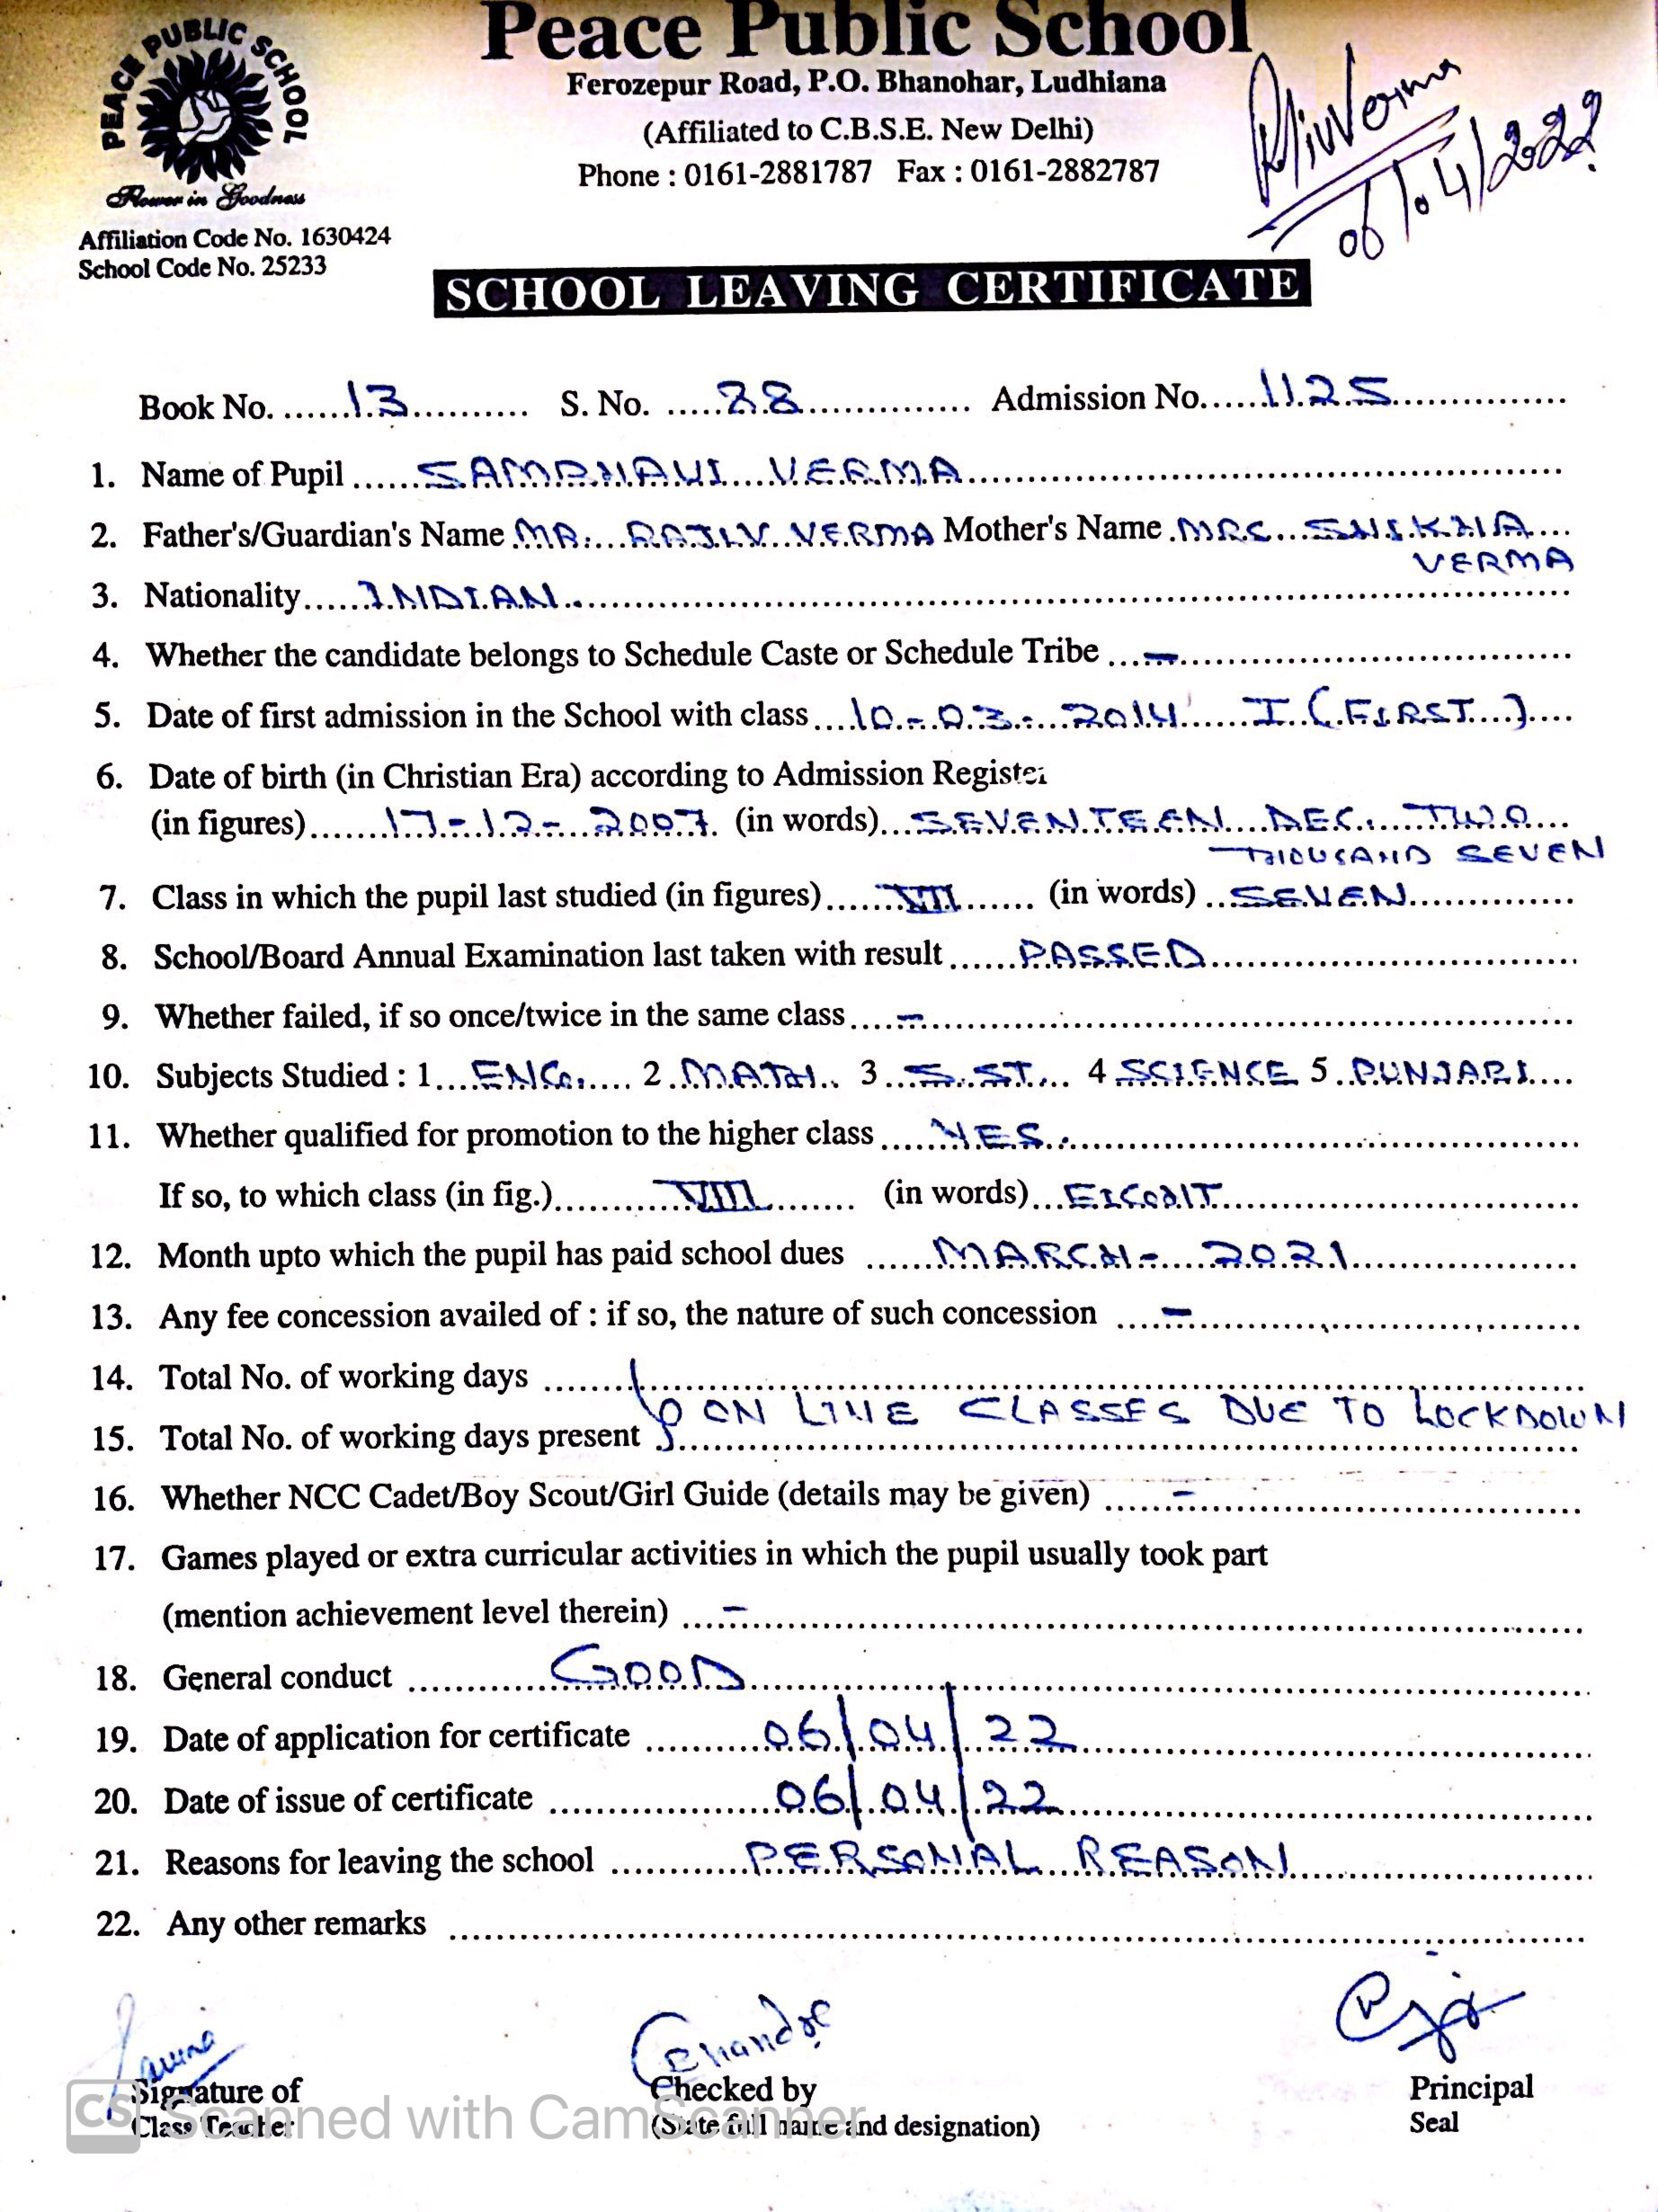 Peace Public School
PEACE PUBLIC SCHOOL
Ferozepur Road, P.O. Bhanohar, Ludhiana
(Affiliated to C.B.S.E. New Delhi)
Phone : 0161-2881787 Fax : 0161-2882787
Verma
06/04/2022
Flower in Goodness
Affiliation Code No. 1630424
School Code No. 25233
SCHOOL LEAVING CERTIFICATE
Book No. ......13.......... S. No. .....28............... Admission No......1125................
1. Name of Pupil ......SAMBHAVI VERMA......
2. Father's/Guardian's Name MR. RAJIV VERMA Mother's Name MRS SHIKHA
VERMA
3. Nationality......INDIAN......
4. Whether the candidate belongs to Schedule Caste or Schedule Tribe ...-......
5. Date of first admission in the School with class ...10-03-2014 I (FIRST)....
6. Date of birth (in Christian Era) according to Admission Register
(in figures)......17-12-2007. (in words)...SEVENTEEN DEC. TWO....
THOUSAND SEVEN
7. Class in which the pupil last studied (in figures)......VII...... (in words) ..SEVEN......
8. School/Board Annual Examination last taken with result ......PASSED......
9. Whether failed, if so once/twice in the same class ....-......
10. Subjects Studied : 1....ENG..... 2..MATH.. 3...S.ST... 4 SCIENCE 5..PUNJABI....
11. Whether qualified for promotion to the higher class .....YES......
If so, to which class (in fig.)......VIII...... (in words)...EIGHT......
12. Month upto which the pupil has paid school dues ......MARCH-2021......
13. Any fee concession availed of : if so, the nature of such concession ....-......
14. Total No. of working days ......
ON LINE CLASSES DUE TO LOCKDOWN
15. Total No. of working days present ......
16. Whether NCC Cadet/Boy Scout/Girl Guide (details may be given) ......-......
17. Games played or extra curricular activities in which the pupil usually took part
(mention achievement level therein) ...-......
18. General conduct ......GOOD......
19. Date of application for certificate ......06/04/22......
20. Date of issue of certificate ......06/04/22......
21. Reasons for leaving the school ......PERSONAL REASON......
22. Any other remarks ......
Chandok
Signature of
Class Teacher
Checked by
(State full name and designation)
Principal
Seal
CS Scanned with CamScanner